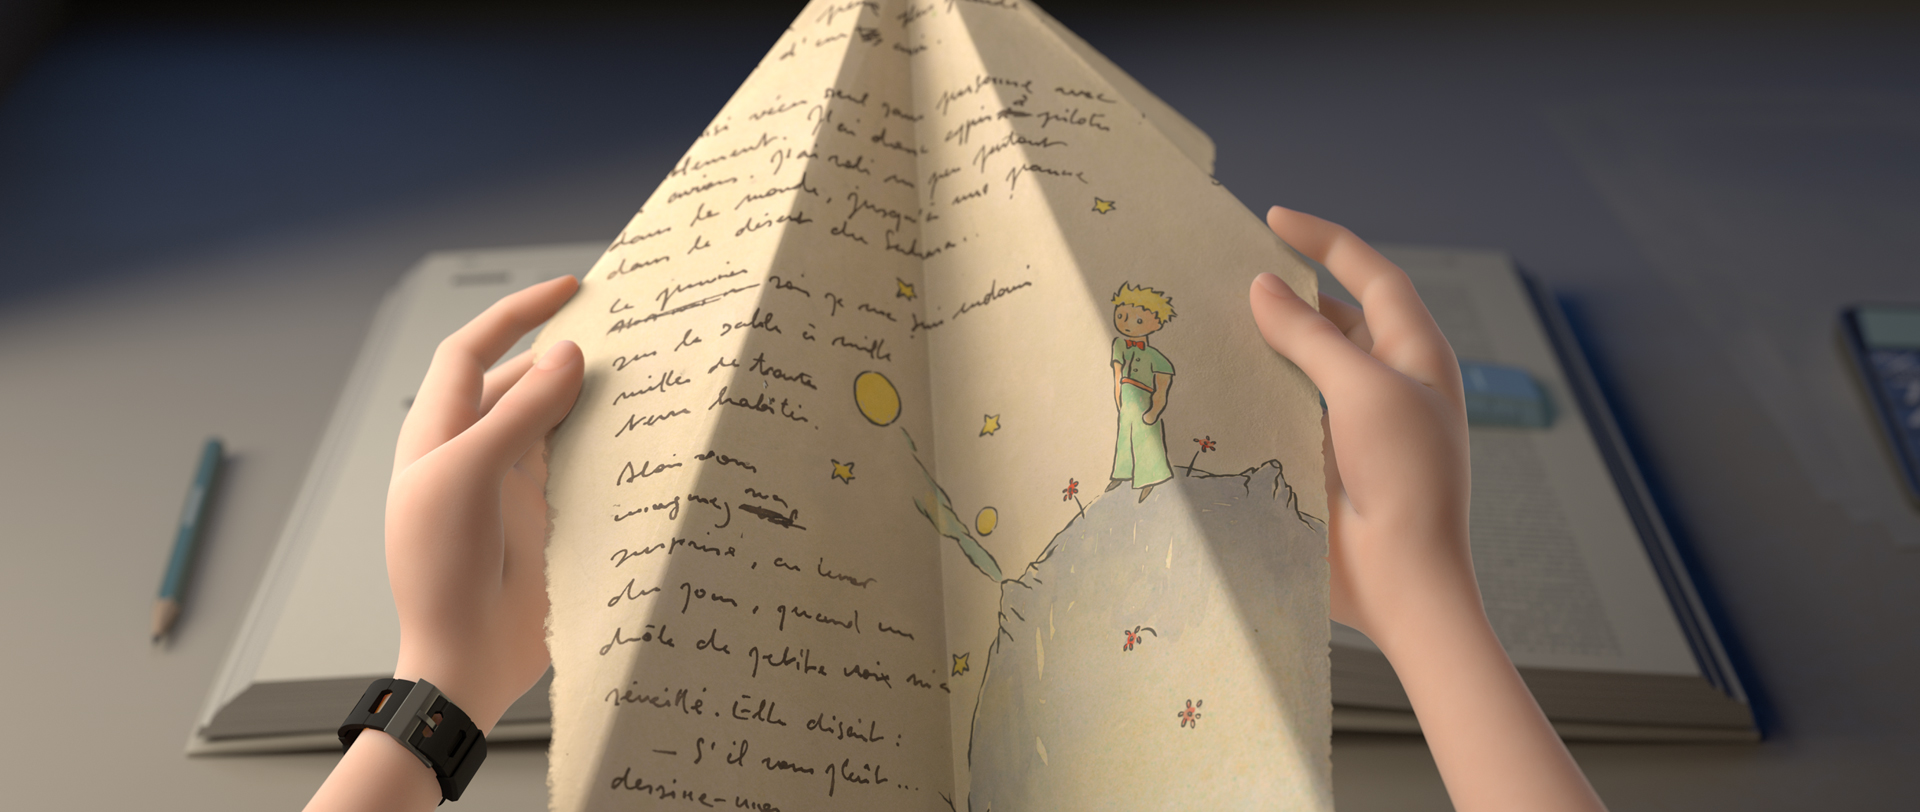 d'eux aussi.
ainsi vécu seul sans personne avec
J'ai donc appris à piloter
avions. J'ai volé un peu partout
dans le monde, jusqu'à une panne
dans le désert du Sahara..
Le premier soir je me suis endormi
sur le sable à mille
milles de toute
terre habitée.
Alors vous
imaginez ma
surprise, au lever
du jour, quand un
drôle de petite voix m'a
réveillé. Elle disait :
— S'il vous plaît...
dessine-moi